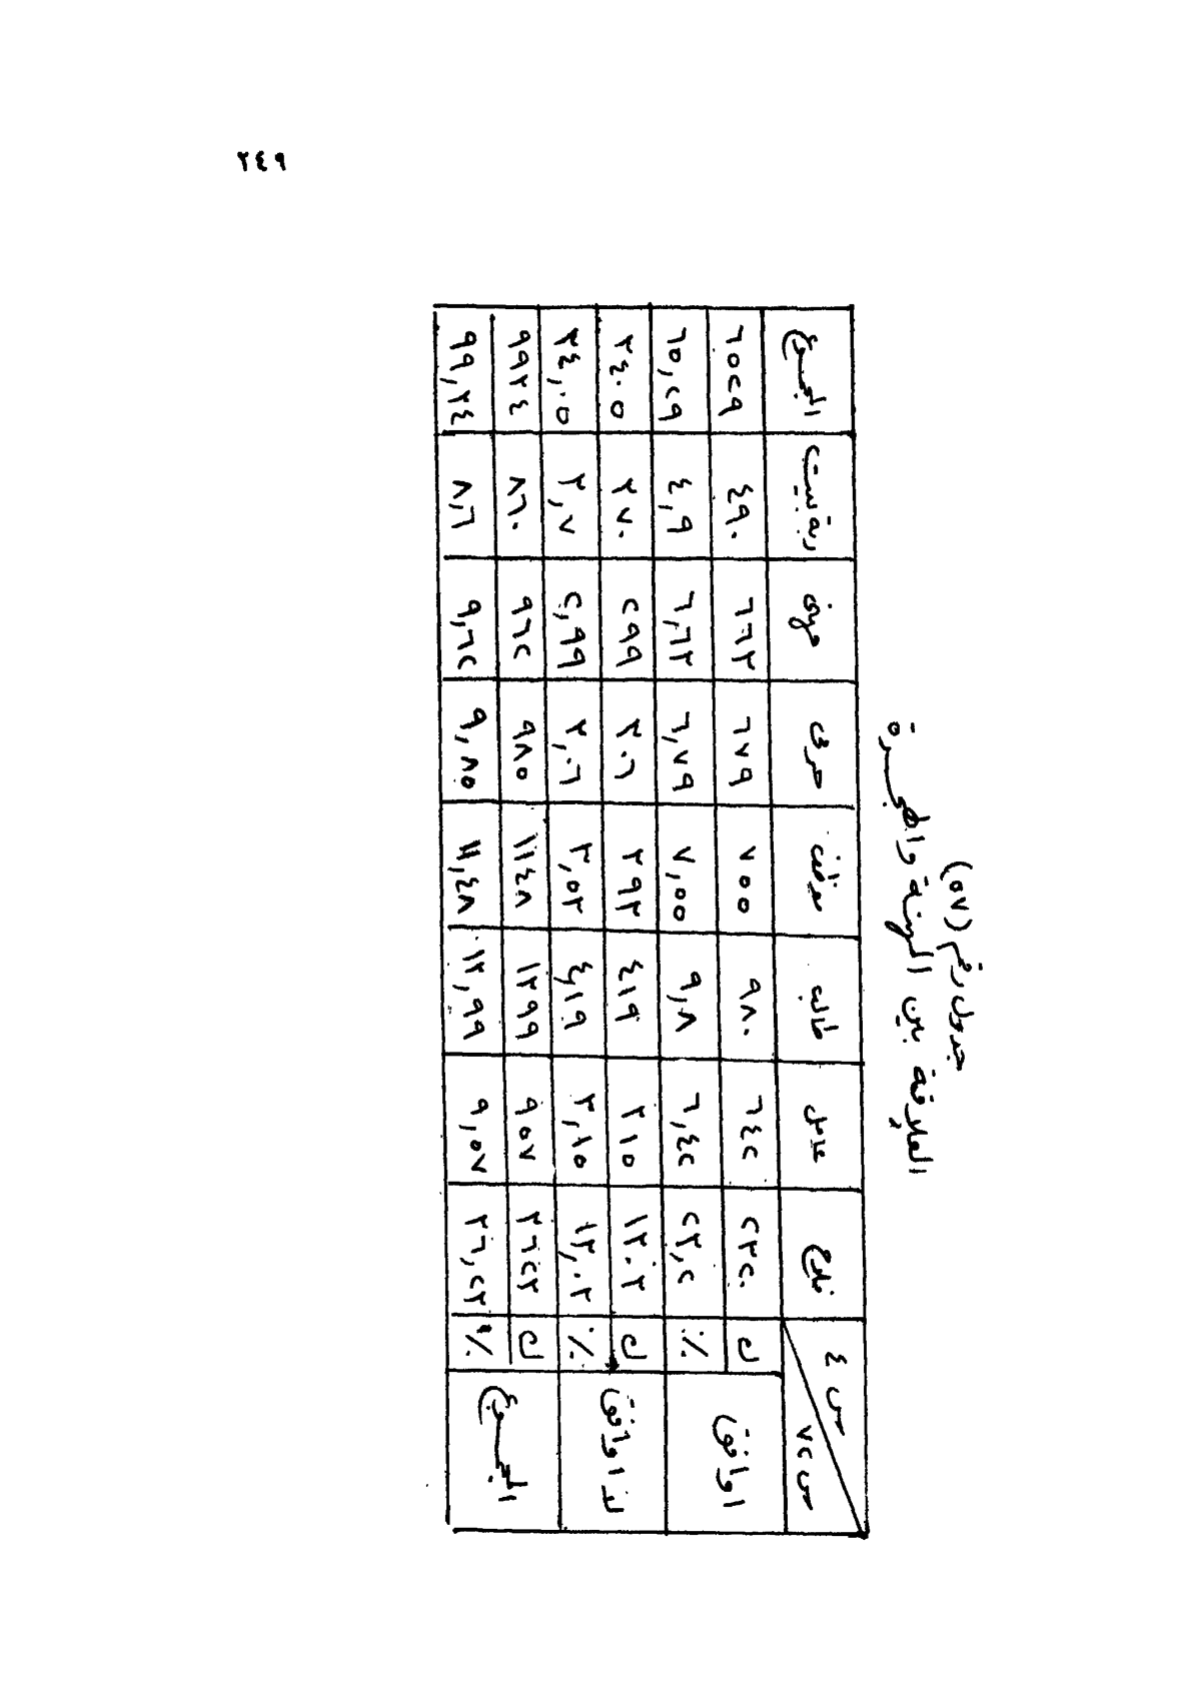 ٢٤٩
جدول رقم (٥٧)
العلاقة بين المهنة والهجرة
س ٤ س ٢٧ فلاح عامل طالب موظف حرفى مهنى ربة بيت المجموع
اوافق ك ٢٣٢٠ ٦٤٢ ٩٨٠ ٧٥٥ ٦٧٩ ٦٦٣ ٤٩٠ ٦٥٢٩
٪ ٢٣,٢ ٦,٤٢ ٩,٨ ٧,٥٥ ٦,٧٩ ٦,٦٣ ٤,٩ ٦٥,٢٩
لا اوافق ك ١٣٠٣ ٣١٥ ٤١٩ ٣٩٣ ٣٠٦ ٢٩٩ ٣٧٠ ٣٤٠٥
٪ ١٣,٠٣ ٣,١٥ ٤,١٩ ٣,٥٣ ٣,٠٦ ٢,٩٩ ٣,٧ ٣٤,٠٥
المجموع ك ٣٦٢٣ ٩٥٧ ١٣٩٩ ١١٤٨ ٩٨٥ ٩٦٢ ٨٦٠ ٩٩٣٤
٪ ٣٦,٢٣ ٩,٥٧ ١٣,٩٩ ١١,٤٨ ٩,٨٥ ٩,٦٢ ٨,٦ ٩٩,٣٤